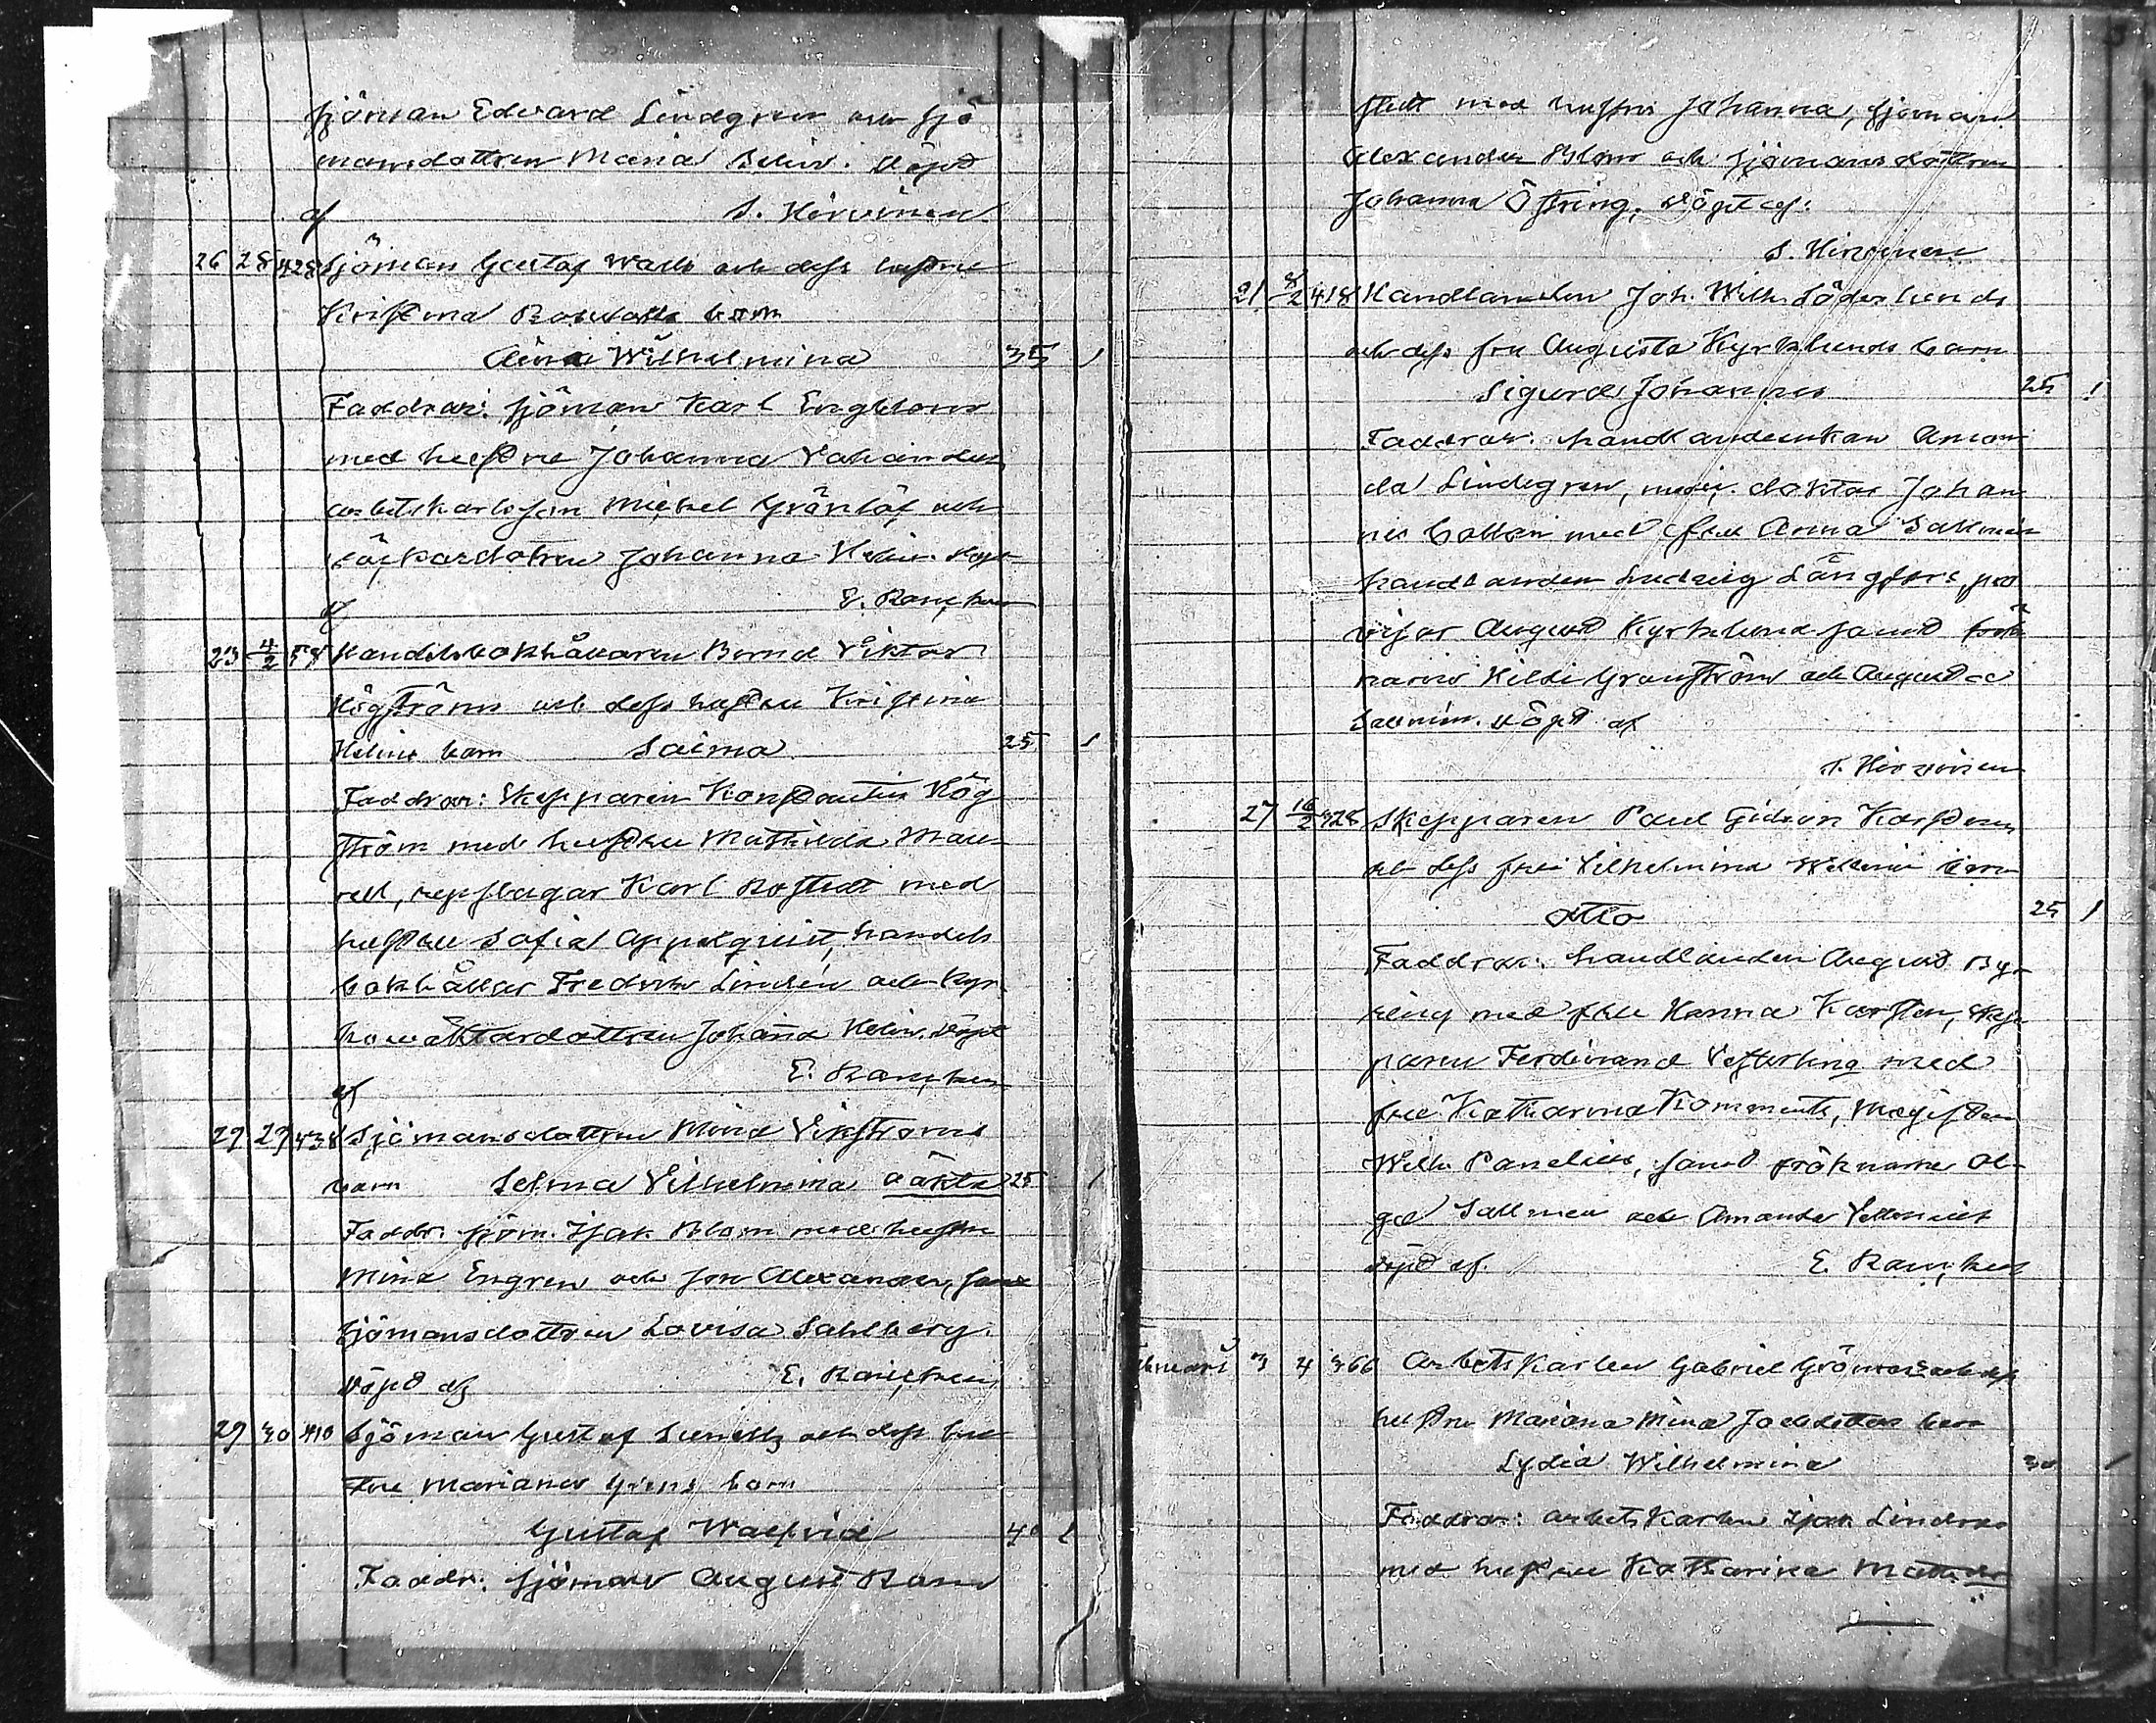 sjöman Edvard Lindgren och sjö
mansdottren Maria Selin. döpt
af S. Hirvinen
26 28 428 Sjöman Gustaf Walls och dess hustru
Kristina barn
Aina Wilhelmina 35 1
Faddrar: sjöman Karl Engblom
med hustru Johanna
arbetskarlsson Michel Grönlöf och
Johanna Helin. döpt
af E. Rancken
23 4/2 Handelsbokhållaren Bernd Viktor
Högströms och dess hustru Kristina
Helins barn Saima 25 1
Faddrar: Skepparen Konstantin Hög
ström med hustru Mathilda Mau
rell, repslagar Karl Bostedt med
hustru Sofia Appelqvist, handels
bokhållar Fredrik Lindén och kyr
kovaktardottren Johanna Helin. döpt
af E. Rancken
29 29 438 Sjömansdottren Mina Vikströms
barn Selma Vilhelmina oäkta 25 1
Faddr. sjöm. Isak Blom med hustru
Mina Engren och son Alexander, samt
sjömansdottren Lovisa Sahlberg.
döpt af E. Rancken
29 30 410 Sjöman Gustaf och dess hus
tru Mariana barn
Gustaf Walfrid 40 1
Faddr. sjöman August
stedt med hustru Johanna, sjöman
Alexander Blom och sjömansdottren
Johanna Östring, döpt af:
S. Hirvinen
21 /2 418 Handlanden Joh. Wilh. Söderlunds
och dess fru Augusta Kyrklunds barn
Sigurd Johannes 25 1
Faddrar: handlandeenkan Aman
da Lindegren, medic. doktor Johan
nes med fru Anna Sallmén
handlanden Ludvig Långfors, pro
visor August Kyrklund samt frök
narna Hilda Granström och Augusta
Sallmén. döpt af
S. Hirvinen
27 16/2 428 Skepparen Paul Gideon Karstens
och dess fru Vilhelmina barn
Otto 25 1
Faddrar: handlanden August By
ring med fru Hanna Karsten, skep
paren Ferdinand Vesterling med
fru Katharina, Magistern
Wilh. Panelius, samt fröknarna Ol
ga Sallmen och Amanda
döpt af. E. Rancken
Februari 3 4 366 Arbetskarlen Gabriel och dess
hustru Mariana Mina barn
Lydia Wilhelmina 30 1
Faddrar: arbetskarlen Isak
med hustru Katharina Mattsdr